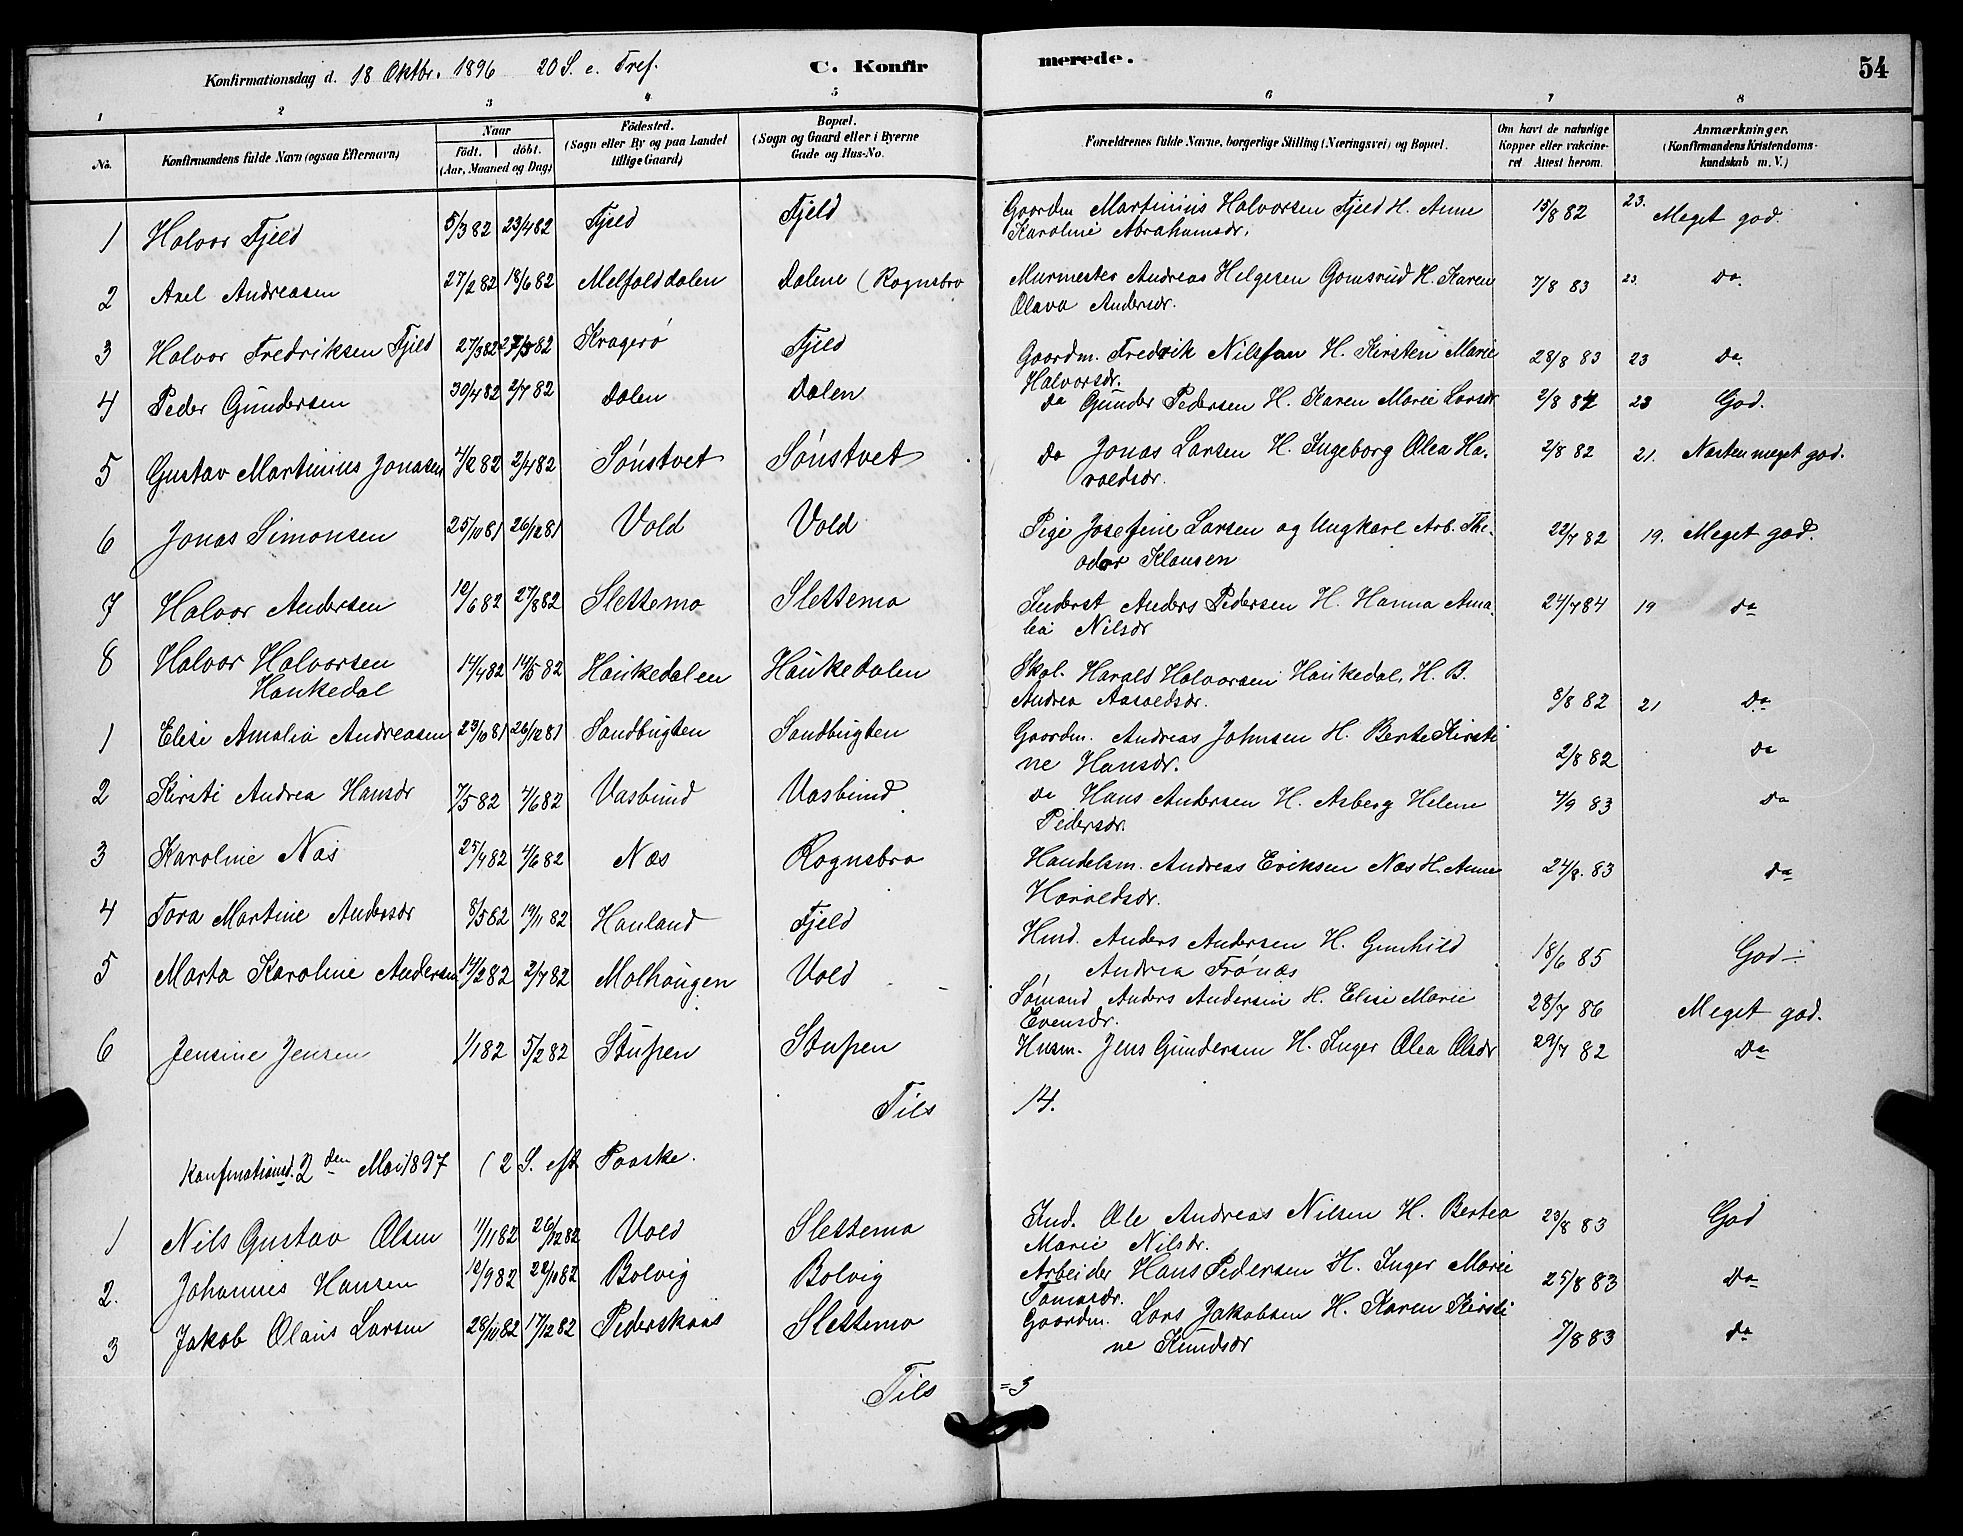 Konfirmationsdag d. 18 Oktbr. 1896 20 S. e. Tref. C. Konfirmerede. 54
1 2 3 4 5 6 7 8
No. Konfirmandens fulde Navn (ogsaa Efternavn) Naar födt. döbt. (Aar, Maaned og Dag) Födested. (Sogn eller By og paa Landet tillige Gaard) Bopæl. (Sogn og Gaard eller i Byerne Gade og Hus-No. Forældrenes fulde Navne, borgerlige Stilling (Næringsvei) og Bopæl. Om havt de naturlige Kopper eller vakcineret Attest herom. Anmærkninger. (Konfirmandens Kristendomskundskab m. V.)
1 Halvor Fjeld 5/3 82 23/4 82 Fjeld Fjeld Gaardm Martinius Halvorsen Fjeld H. Anne
Karoline Abrahamsdr. 15/8 82 23. Meget god.
2 Axel Andreasen 27/2 82 18/6 82 Melfalddalen Dalene (Rognsbro Murmester Andreas Helgesen Gomsrud H. Karen
Olava Andersdr. 7/8 83 23. Do.
3 Halvor Fredriksen Fjeld 27/3 82 27/5 82 Kragerø Fjeld Gaardm. Fredrik Nilssen H. Kirsten Marie
Halvorsdr. 28/8 83 23 Do
4 Peder Gundersen 30/4 82 2/7 82 Dalen Dalen Do Gunder Pedersen H. Karen Marie Larsdr 2/8 82 23 God.
5 Gustav Martinius Jonasen 4/2 82 2/4 82 Sønstvet Sønstvet Do Jonas Larsen H. Ingeborg Olea Ha-
raldsdr. 2/8 82 21. Næsten meget god.
6 Jonas Simonsen 25/10 81 26/12 81 Vold Vold Pige Josefine Larsen og Ungkarl Arb. The-
odor Klausen 22/7 82 19. Meget god.
7 Halvor Andersen 12/6 82 27/8 82 Slettemo Slettemo Inderst Anders Pedersen H. Hanna Ama-
lia Nilsdr 24/7 84 19 do
8 Halvor Halvorsen
Haukedal 14/4 82 14/5 82 Haukedalen Haukedalen Skol. Harals Halvorsen Haukedal, H. B.
Andrea Aasoldsdr. 8/8 82 21 Do
1 Elise Amalia Andreasen 23/10 81 26/12 81 Sandbugten Sandbugten Gaardm. Andreas Johnsen H. Berte Kirsti
ne Hansdr. 2/8 82 do
2 Kirsti Andrea Hansdr 7/5 82 4/6 82 Vasbund Vasbund Do Hans Andersen H. Asberg Helene
Pedersdr. 4/9 83 Do
3 Karoline Næs 25/4 82 4/6 82 Næs Rognsbro Handelsm. Andreas Eriksen Næs H. Anne
Haraldsdr. 24/8. 83 do
4 Tora Martine Andersdr 8/5 82 19/11 82 Hauland Fjeld Hmd. Anders Andersen H. Gunhild
Andrea Frønæs 18/6 85 God ÷
5 Marta Karoline Andersen 14/2 82 2/7 82 Molhaugen Vold Sømand Anders Andersen H. Elise Marie
Evensdr. 28/7 86 Meget god.
6 Jensine Jensen 1/1 82 5/2 82 Stupen Stupen Husm. Jens Gundersen H. Inger Olea Olsdr 29/7 82 Do
Tils 14.
Konfmationsd. 2den Mai 1897 (2 S. eft Paaske.
1 Nils Gustav Olsen 11/11 82 26/12 82 Vold Slettemo Ind. Ole Andreas Nilsen H. Bertea
Marie Nilsdr. 23/8 83 God
2. Johannes Hansen 12/9 82 22/10 82 Bolvig Bolvig Arbeider Hans Pedersen H. Inger Marie
Tomasdr. 25/8 83 Do
3 Jakob Olaus Larsen 28/10 82 17/12 82 Pederskaas Slettemo Gaardm. Lars Jakobsen H. Karen Kirsti
ne Knudsdr 7/8 83 do
Tils = 3